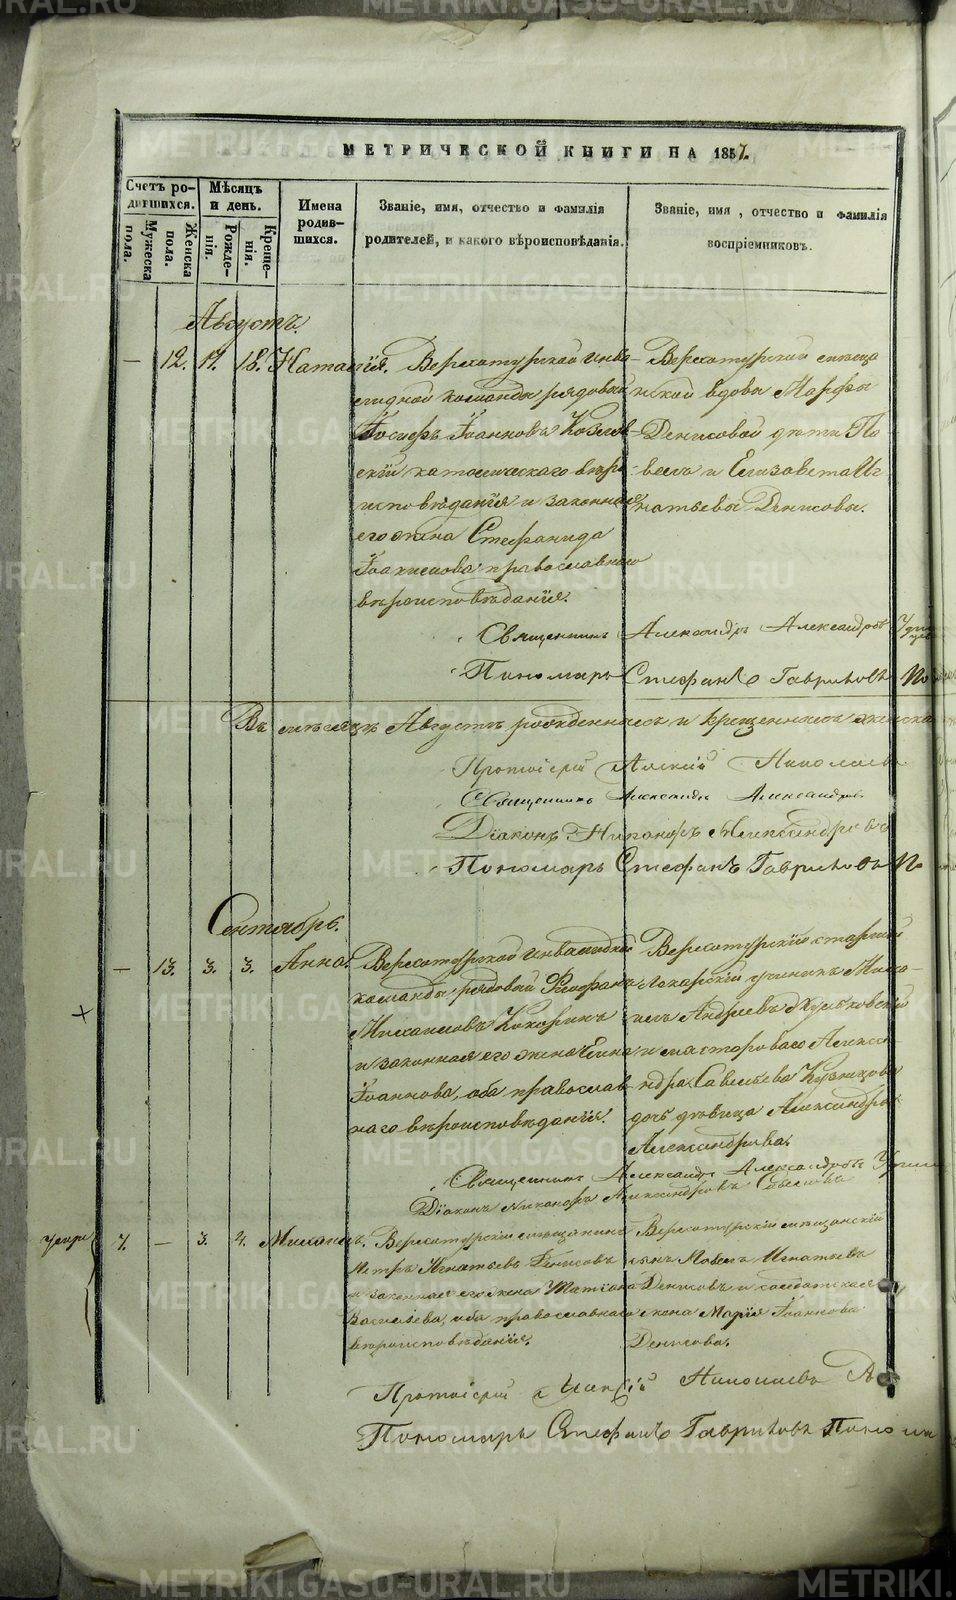 МЕТРИЧЕСКОЙ КНИГИ НА 1857.
Счетъ родившихся.
Мѣсяцъ и день.
Имена родившихся.
Званіе, имя, отчество и фамилія родителей, и какого вѣроисповѣданія.
Званіе, имя, отчество и фамилія воспріемниковъ.
Мужеска пола.
Женска пола.
Рожденія.
Крещенія.
Августъ.
— 12. 17. 18. Наталія.
Верхотурской инва-
лидной команды рядовой
Іосифъ Іоанновъ Козлов-
скій католическаго вѣро-
исповѣданія и законная
его жена Стефанида
Іоакимова православнаго
вѣроисповѣданія.
Верхотурской мѣща-
нской вдовы Марфы
Денисовой дѣти Па-
велъ и Елизавета Иг-
натьевы Денисовы.
Священникъ Александръ Александровъ
Пономарь Стефанъ Гавриловъ
Въ мѣсяцѣ Августѣ рожденныхъ и крещенныхъ женска
Протоіерей Алексій Николаевъ
Священникъ Александръ Александровъ
Діаконъ Никаноръ Александровъ
Пономарь Стефанъ Гавриловъ По
Сентябрь.
— 13. 3. 3. Анна.
Верхотурской инвалидной
команды рядовой Феофанъ
Михаиловъ Кокоринъ
и законная его жена Елена
Іоаннова, оба православ-
наго вѣроисповѣданія.
Верхотурскій старшій
лекарскій ученикъ Миха-
илъ Андреевъ
и мастероваго Алекса-
ндра Савельева Кузнецова
дочь дѣвица Александра
Александрова.
Священникъ Александръ Александровъ
Діаконъ Никаноръ Александровъ Савельевъ
7. — 3. 4. Михаилъ.
Верхотурскій мѣщанинъ
Петръ Игнатьевъ Денисовъ
и законная его жена Татіана
Васильева, оба православнаго
вѣроисповѣданія.
Верхотурскій мѣщанскій
сынъ Павелъ Игнатьевъ
Денисовъ и солдатская
жена Марія Іоаннова
Денисова.
Протоіерей Алексій Николаевъ
Пономарь Стефанъ Гавриловъ
METRIKI.GASO-URAL.RU